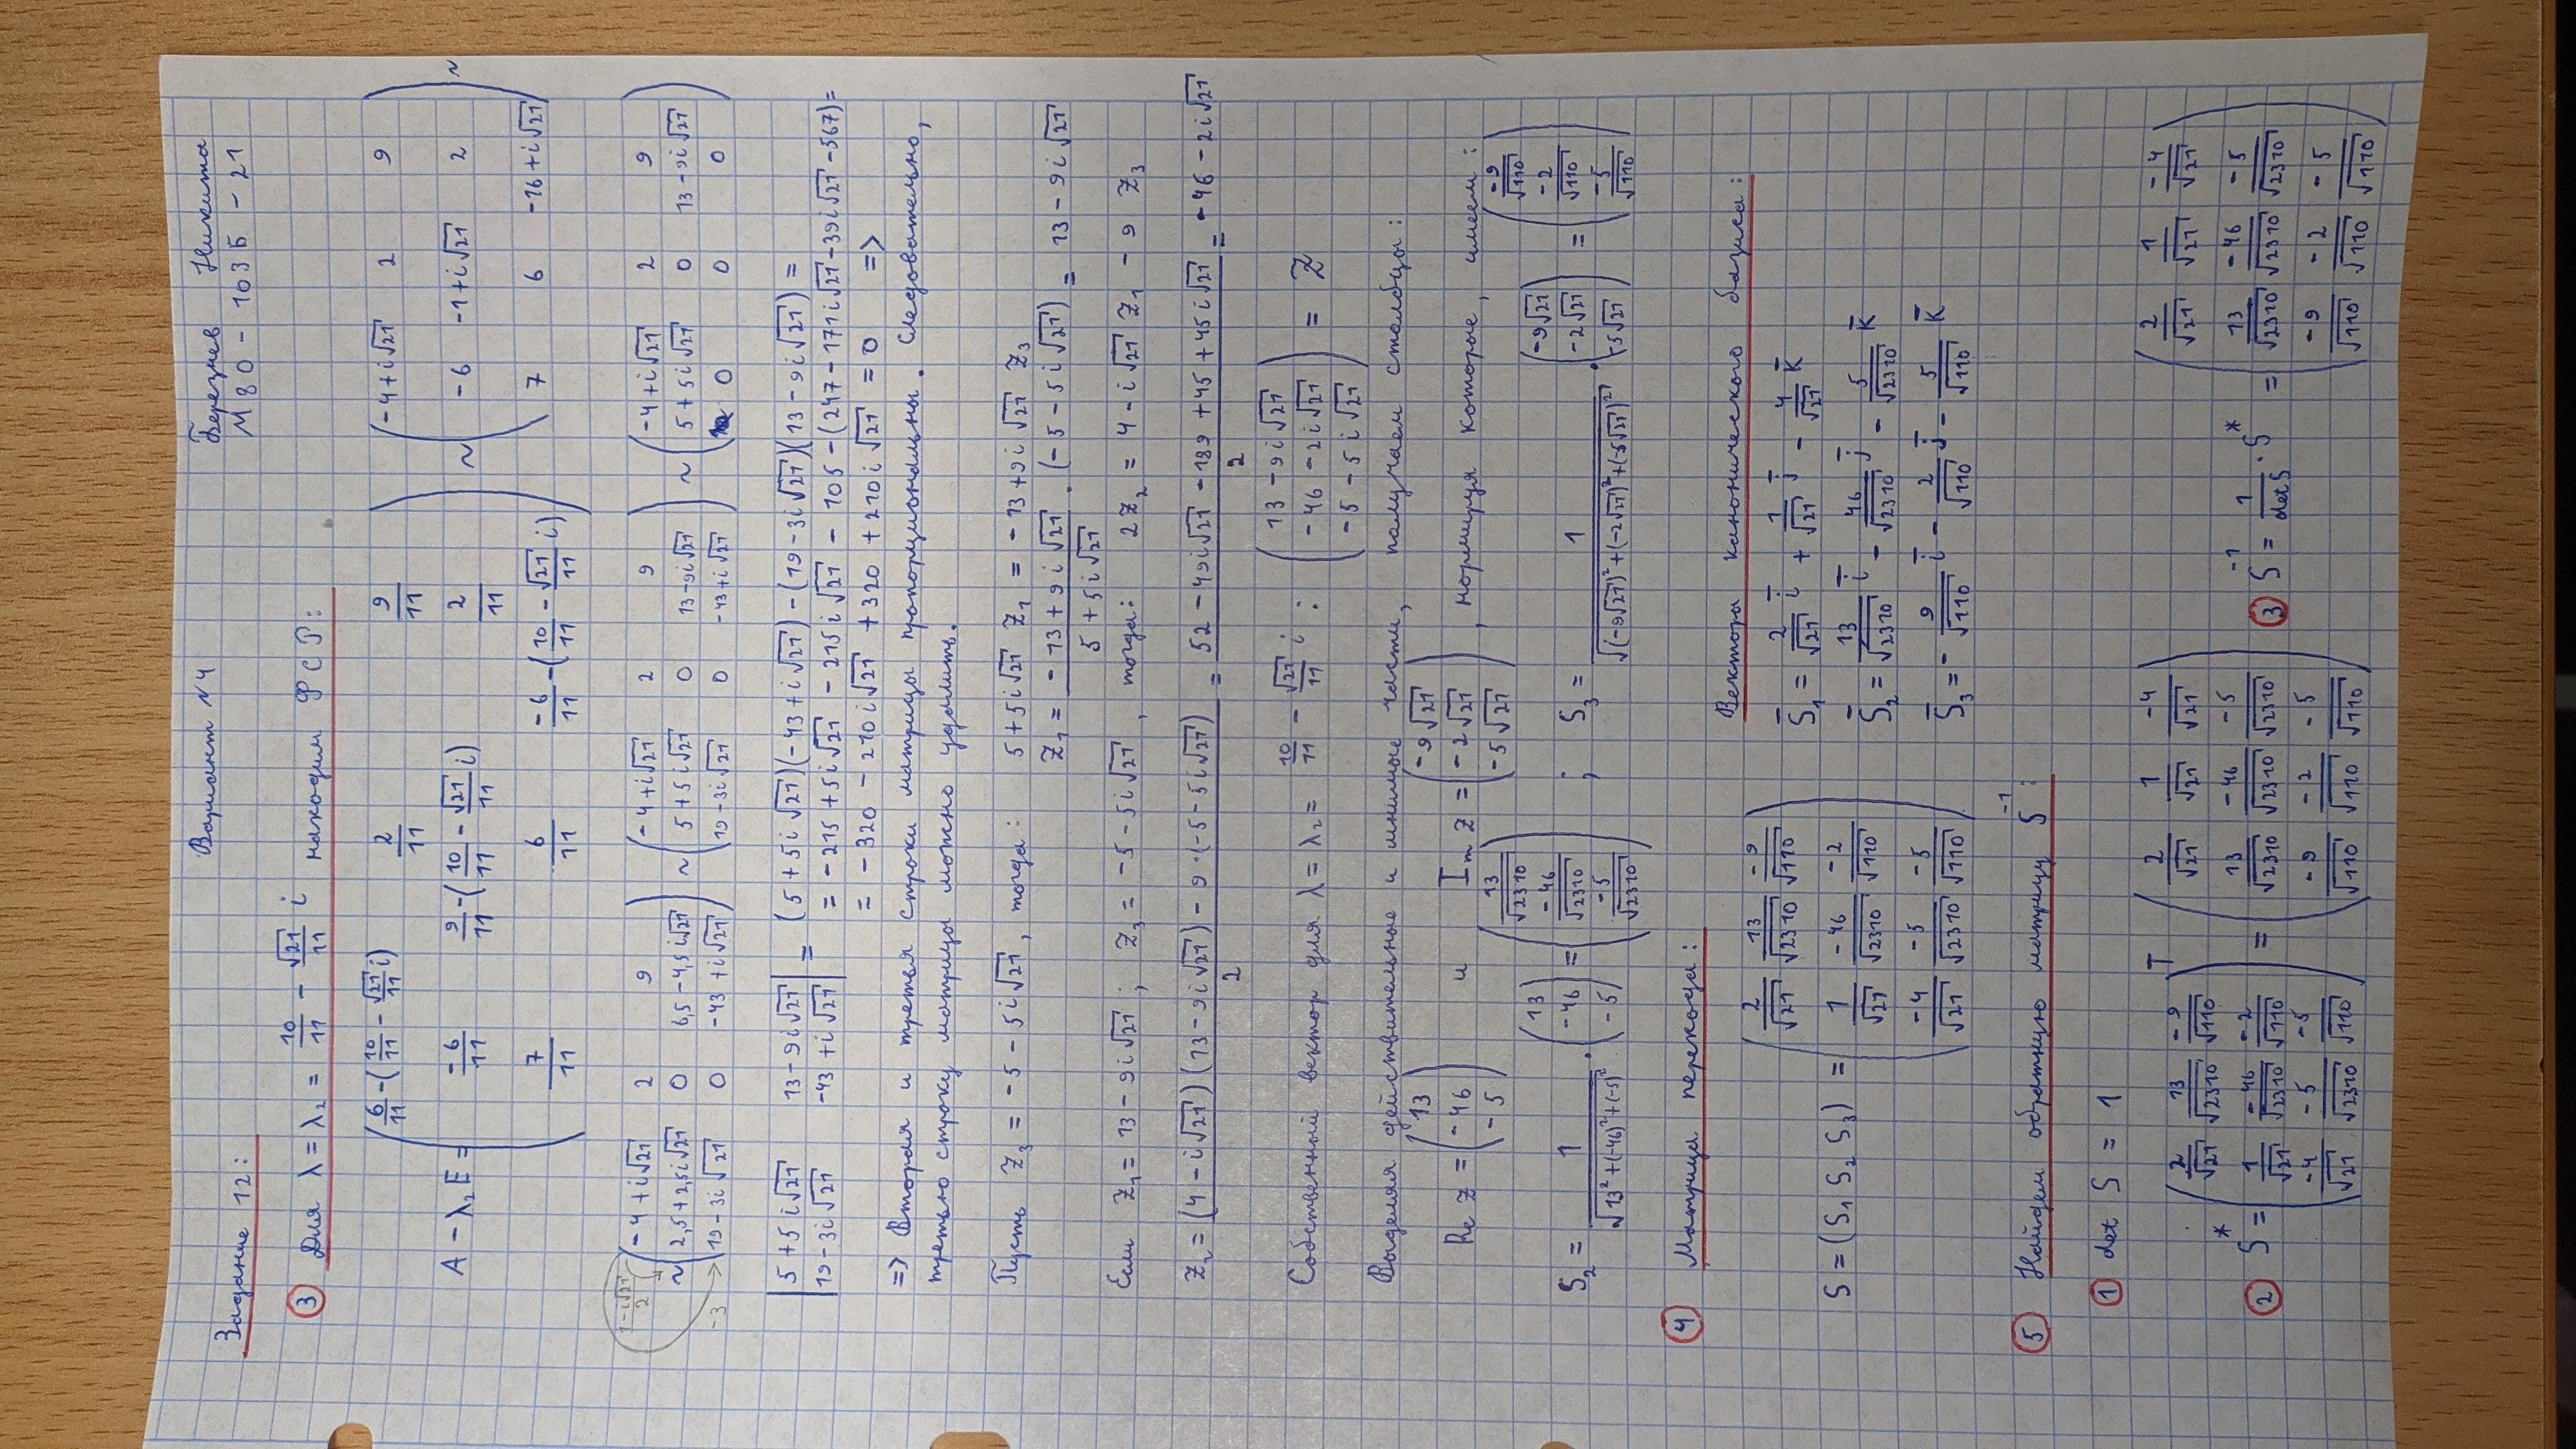 Вариант №4
Березнев Никита
Задание 12:
М80 - 103Б - 21
③ Для λ = λ₂ = 10/11 - √21/11 i находим ФСР:
A - λ₂E = ( 6/11 - (10/11 - √21/11 i) 2/11 9/11 ; -6/11 9/11 - (10/11 - √21/11 i) 2/11 ; 7/11 6/11 -6/11 - (10/11 - √21/11 i) ) ~ ( -4+i√21 2 9 ; -6 -1+i√21 2 ; 7 6 -16+i√21 ) ~
(1-i√21)/2
-3
~ ( -4+i√21 2 9 ; 2,5+2,5i√21 0 6,5-4,5i√21 ; 19-3i√21 0 -43+i√21 ) ~ ( -4+i√21 2 9 ; 5+5i√21 0 13-9i√21 ; 19-3i√21 0 -43+i√21 ) ~ ( -4+i√21 2 9 ; 5+5i√21 0 13-9i√21 ; 0 0 0 )
| 5+5i√21 13-9i√21 ; 19-3i√21 -43+i√21 | = (5+5i√21)(-43+i√21) - (19-3i√21)(13-9i√21) =
= -215 + 5i√21 - 215i√21 - 105 - (247 - 171i√21 - 39i√21 - 567) =
= -320 - 210i√21 + 320 + 210i√21 = 0 =>
=> Вторая и третья строки матрицы пропорциональны. Следовательно,
третью строку матрицы можно удалить.
Пусть Z₃ = -5 - 5i√21, тогда: 5+5i√21 Z₁ = -13+9i√21 Z₃
Z₁ = (-13+9i√21)/(5+5i√21) · (-5-5i√21) = 13-9i√21
Если Z₁ = 13-9i√21; Z₃ = -5-5i√21, тогда: 2Z₂ = 4-i√21 Z₁ - 9 Z₃
Z₂ = ((4-i√21)(13-9i√21) - 9·(-5-5i√21))/2 = (52 - 49i√21 - 189 + 45 + 45i√21)/2 = -46-2i√21
Собственный вектор для λ = λ₂ = 10/11 - √21/11 i : ( 13-9i√21 ; -46-2i√21 ; -5-5i√21 ) = Z
Выделяя действительные и мнимые части, получаем столбцы:
Re z = ( 13 ; -46 ; -5 ) и Im z = ( -9√21 ; -2√21 ; -5√21 ), нормируя которые, имеем:
S₂ = 1/√(13²+(-46)²+(-5)²) · ( 13 ; -46 ; -5 ) = ( 13/√2310 ; -46/√2310 ; -5/√2310 ) ; S₃ = 1/√((-9√21)²+(-2√21)²+(-5√21)²) · ( -9√21 ; -2√21 ; -5√21 ) = ( -9/√110 ; -2/√110 ; -5/√110 )
④ Матрица перехода:
Векторы канонического базиса:
S = (S₁ S₂ S₃) = ( 2/√21 13/√2310 -9/√110 ; 1/√21 -46/√2310 -2/√110 ; -4/√21 -5/√2310 -5/√110 )
S̄₁ = 2/√21 ī + 1/√21 j̄ - 4/√21 k̄
S̄₂ = 13/√2310 ī - 46/√2310 j̄ - 5/√2310 k̄
S̄₃ = - 9/√110 ī - 2/√110 j̄ - 5/√110 k̄
⑤ Найдем обратную матрицу S⁻¹:
① det S = 1
② S* = ( 2/√21 13/√2310 -9/√110 ; 1/√21 -46/√2310 -2/√110 ; -4/√21 -5/√2310 -5/√110 )ᵀ = ( 2/√21 1/√21 -4/√21 ; 13/√2310 -46/√2310 -5/√2310 ; -9/√110 -2/√110 -5/√110 )
③ S⁻¹ = 1/det S · S* = ( 2/√21 1/√21 -4/√21 ; 13/√2310 -46/√2310 -5/√2310 ; -9/√110 -2/√110 -5/√110 )